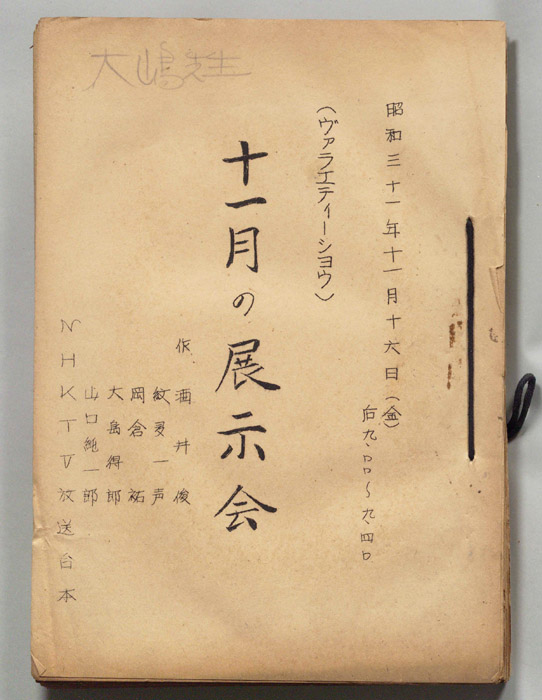 大嶋先生
昭和三十一年十一月十六日(金)
后九、〇〇〜九、四〇
(ヴァラエティーショウ)
十一月の展示会
作 酒井俊
紋多一声
岡倉祐
大島得郎
山口純一郎
NHKTV放送台本